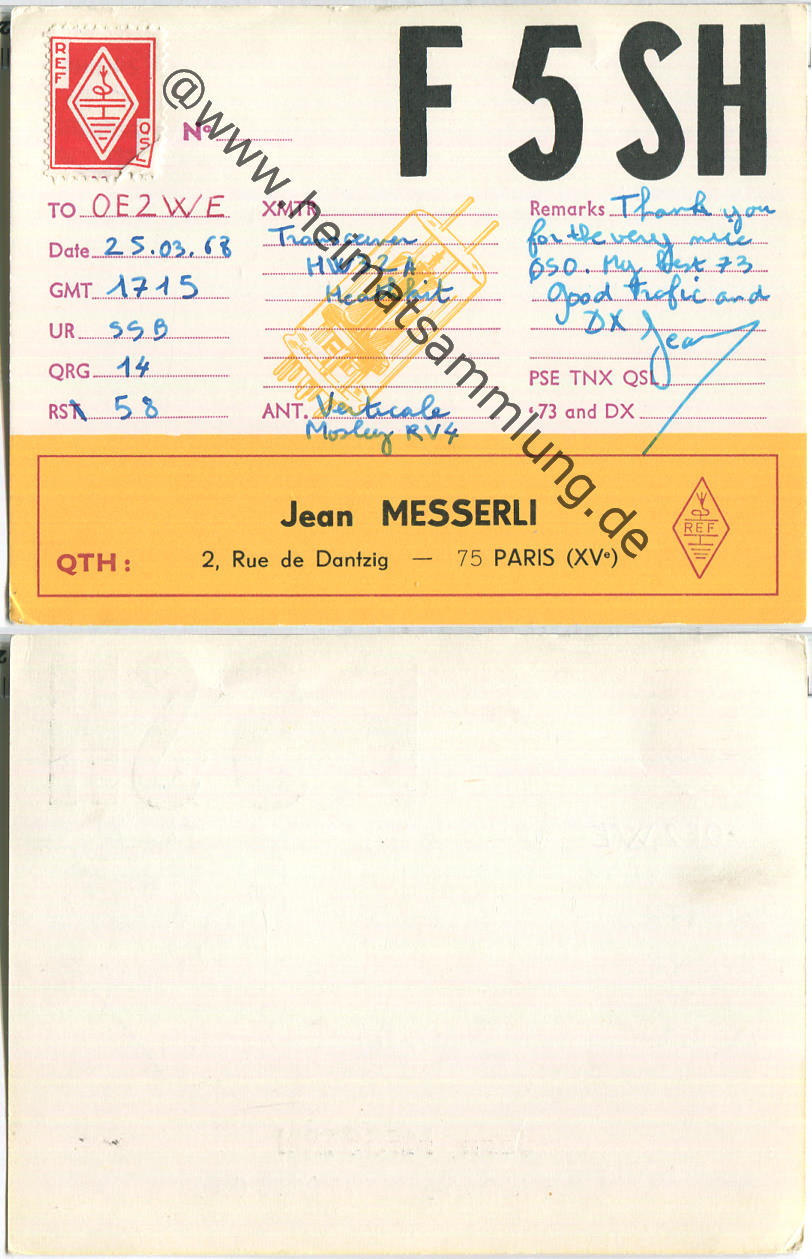 REF
QSL
F 5 SH
@www.heimatsammlung.de
No
TO OE2WE
Date 25.03.68
GMT 1715
UR SSB
QRG 14
RST 58
XMTR
Transceiver
HW32A
Heathkit
ANT. Verticale
Mosley RV4
Remarks Thank you
for the very nice
QSO. My best 73
Good trafic and
DX Jean
PSE TNX QSL
73 and DX
Jean MESSERLI
QTH: 2, Rue de Dantzig — 75 PARIS (XVe)
REF